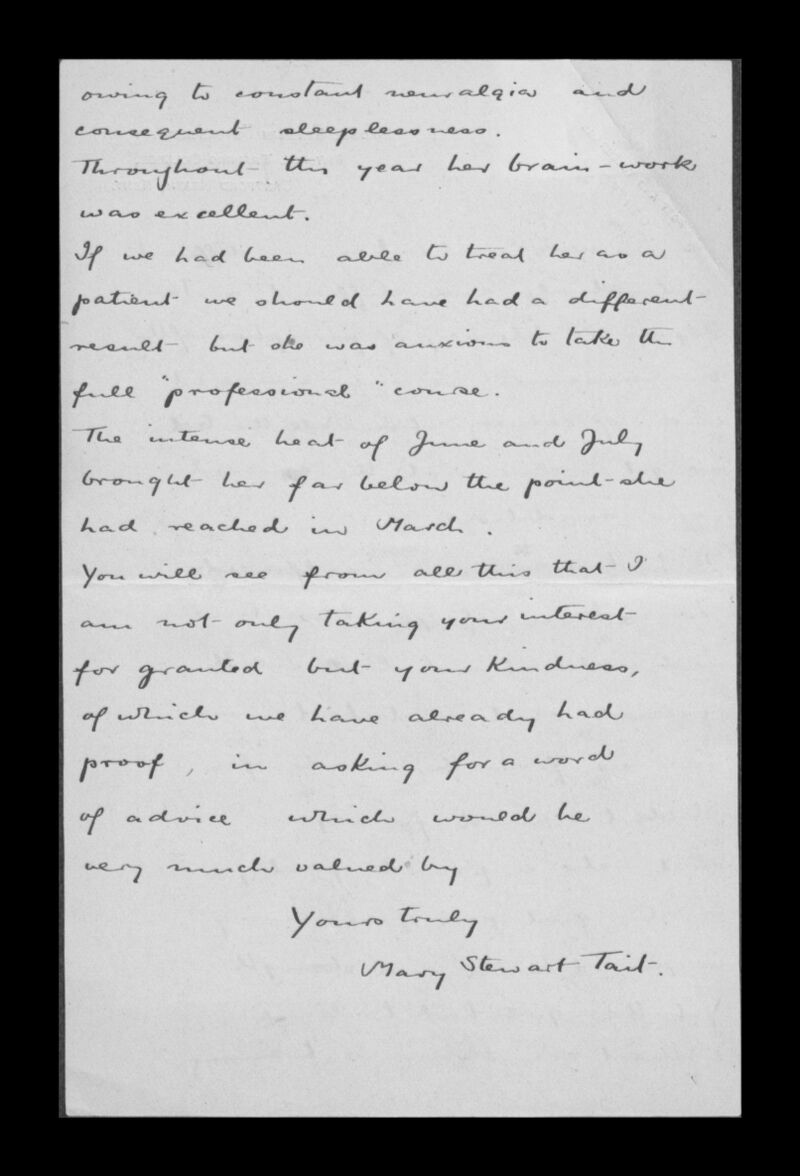 owing to constant neuralgia and
consequent sleeplessness.
Throughout this year her brain-work
was excellent.
If we had been able to treat her as a
patient we should have had a different
result but she was anxious to take the
full "professional" course.
The intense heat of June and July
brought her far below the point she
had reached in March.
You will see from all this that I
am not only taking your interest
for granted but your kindness,
of which we have already had
proof, in asking for a word
of advice which would be
very much valued by
Yours truly
Mary Stewart Tait.